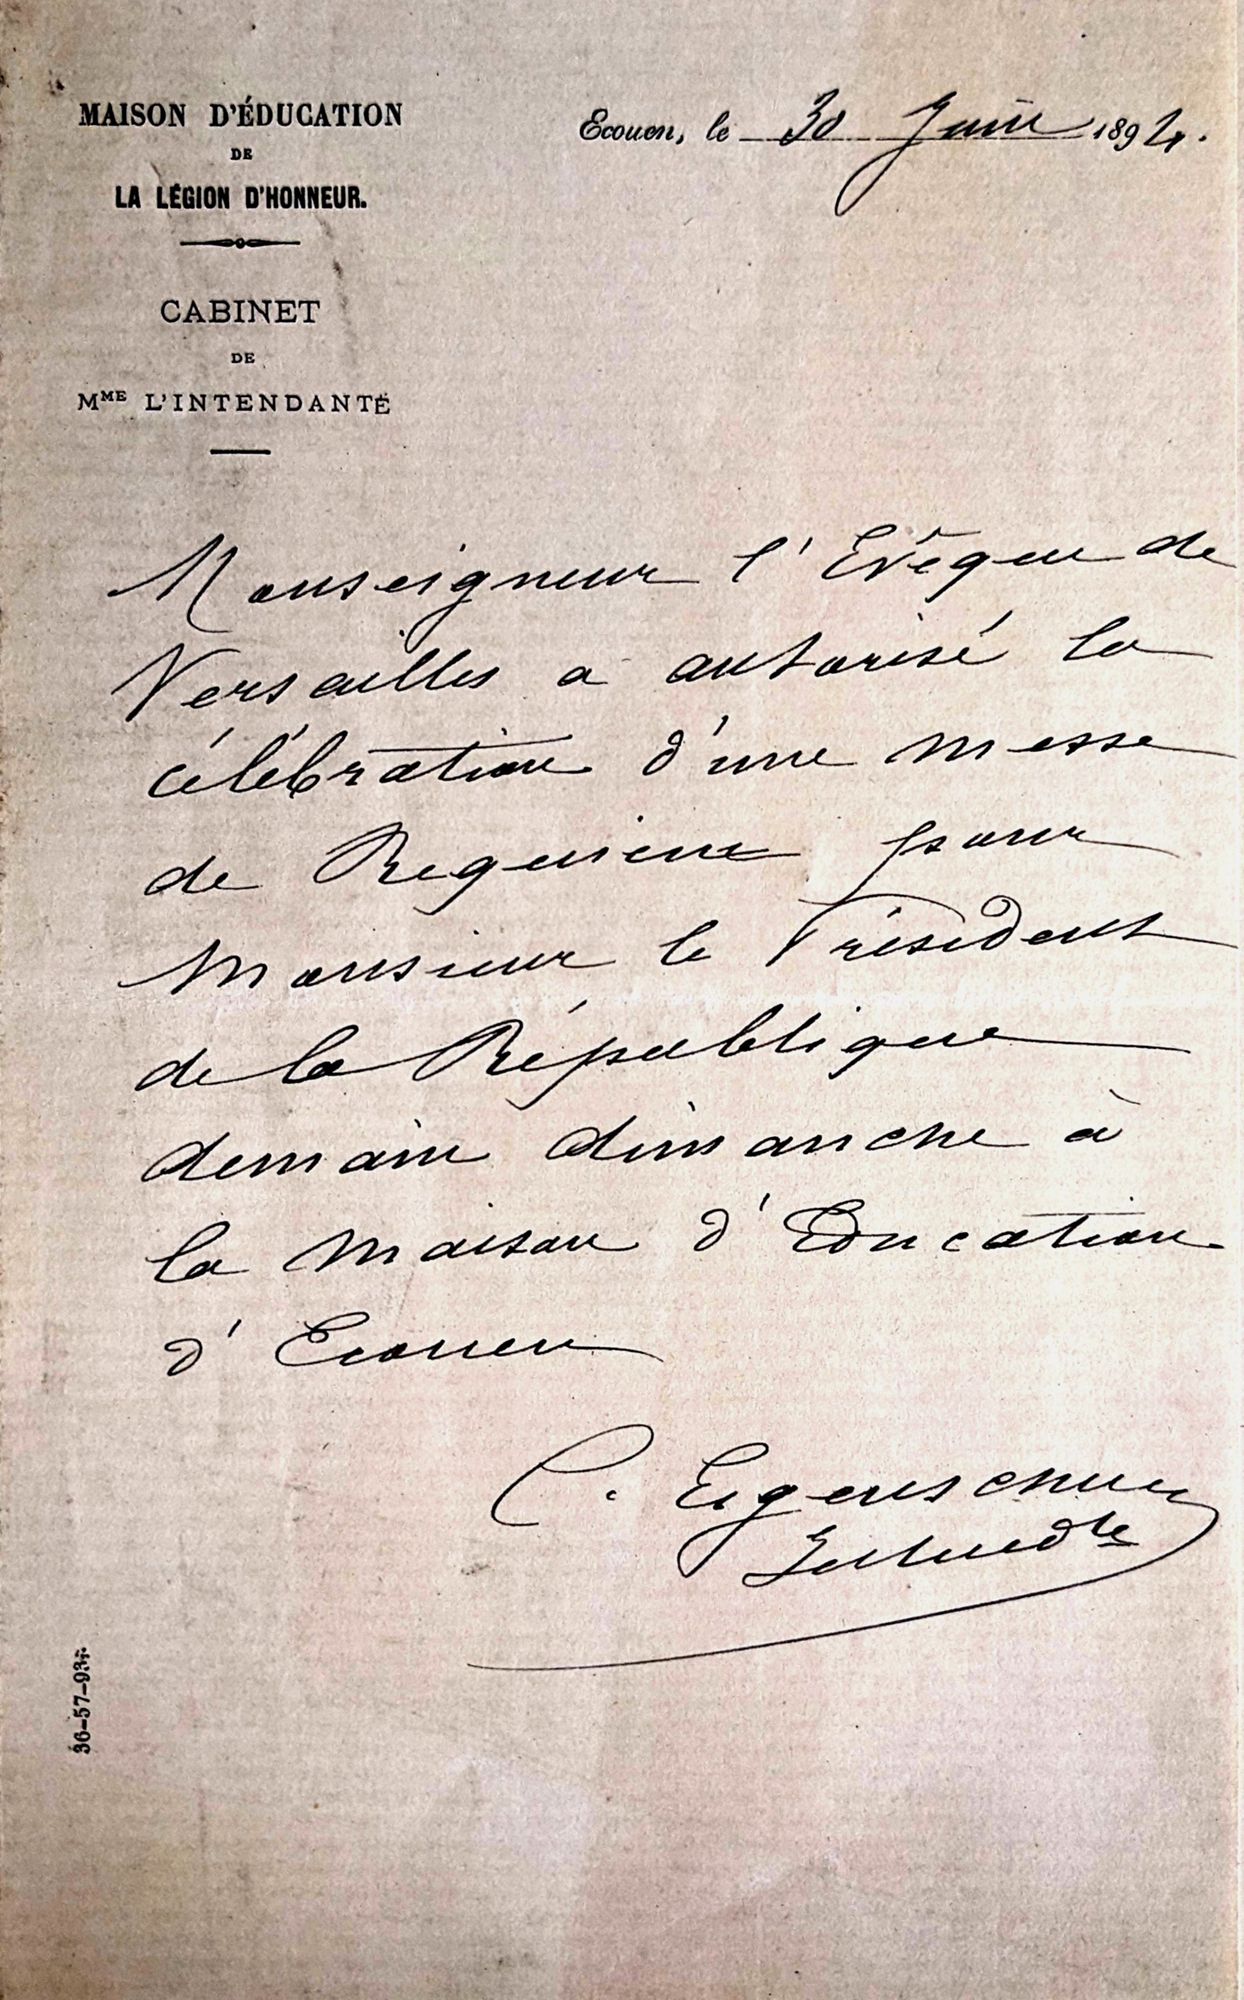 MAISON D'ÉDUCATION
DE
LA LÉGION D'HONNEUR.
CABINET
DE
MME L'INTENDANTE
Ecouen, le 30 Juin 1894.
Monseigneur l'Evêque de
Versailles a autorisé la
célébration d'une messe
de Requiem pour
Monsieur le Président
de la République
demain dimanche à
la maison d'Education
d'Ecouen
C. Eigenschenck
36-57-93